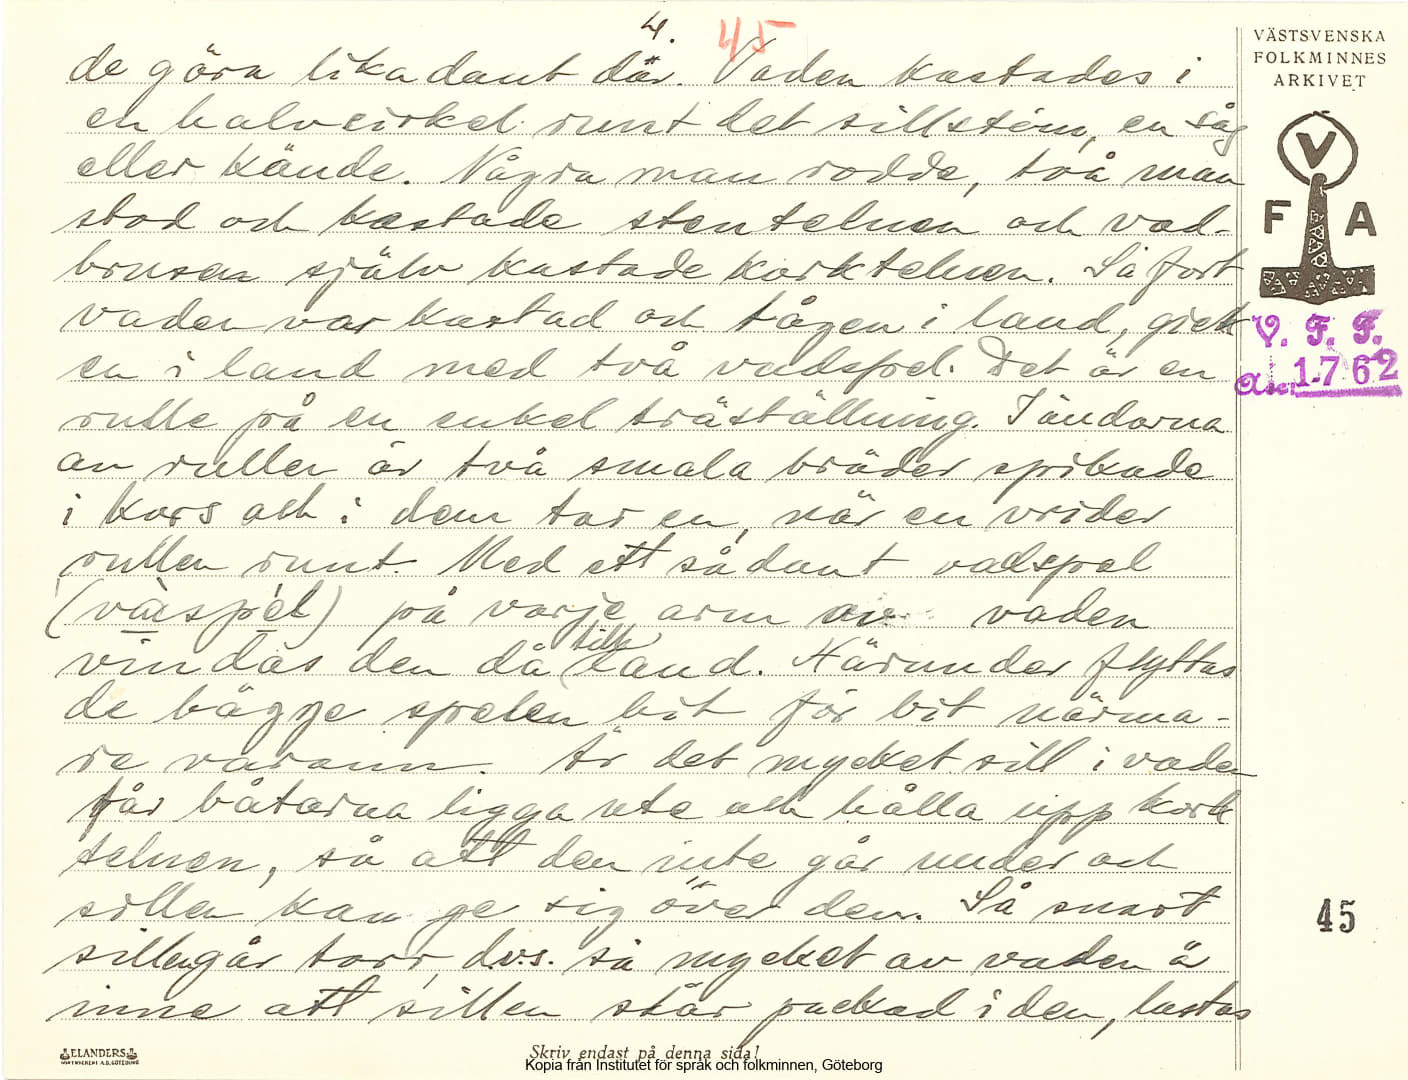 4. 45
de göra lika dant där. Vaden kastades i
en halvcirkel runt det sillstim, en såg
eller kände. Några man rodde, två man
stod och kastade stentelnen och vad-
brusen själv kastade korktelnen. Så fort
vaden var kastad och tågen i land, gick
en i land med två vadspel. Det är en
rulle på en enkel träställning. I ändarna
av rullen är två smala bräder spikade
i kors och i dem tar en, när en vrider
rullen runt. Med ett sådant vadspel
på varje arm av vaden
vindas den då till land. Härunder flyttas
de bägge spelen bit för bit närma-
re varann. Är det mycket sill i vaden
får båtarna ligga ute och hålla upp kork
telnen, så att den inte går under och
sillen kan ge sig över den. Så snart
sillen går torr, d.v.s. så mycket av vaden ä
inne att sillen står packad i den, lastas
VÄSTSVENSKA
FOLKMINNES
ARKIVET
V
F A
V. F. F.
Acc. 1762
45
ELANDERS
Skriv endast på denna sida!
Kopia från Institutet för språk och folkminnen, Göteborg